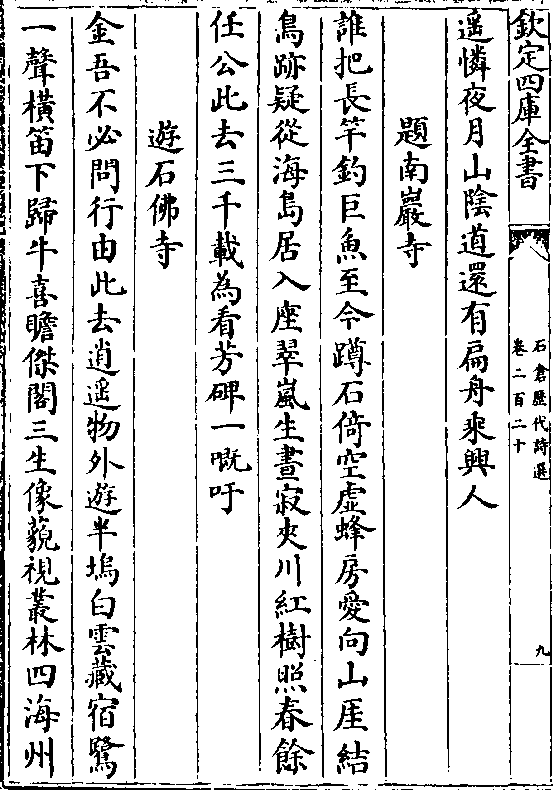 欽定四庫全書
石倉歷代詩選
卷二百二十
九
遥憐夜月山陰道還有扁舟乘興人
題南巖寺
誰把長竿釣巨魚至今蹲石倚空虚蜂房愛向山厓結
鳥跡疑從海島居入座翠嵐生晝寂夾川紅樹照春餘
任公此去三千載為看芳碑一嘅吁
遊石佛寺
金吾不必問行由此去逍遥物外遊半塢白雲藏宿鷺
一聲橫笛下歸牛喜瞻傑閣三生像藐視叢林四海州